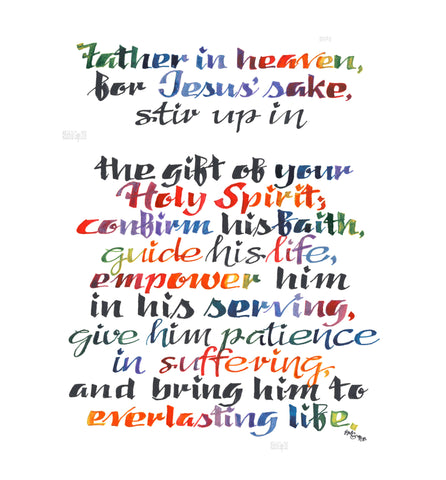 Father in heaven,
for Jesus' sake,
stir up in
the gift of your
Holy Spirit;
confirm his faith,
guide his life,
empower him
in his serving,
give him patience
in suffering,
and bring him to
everlasting life.